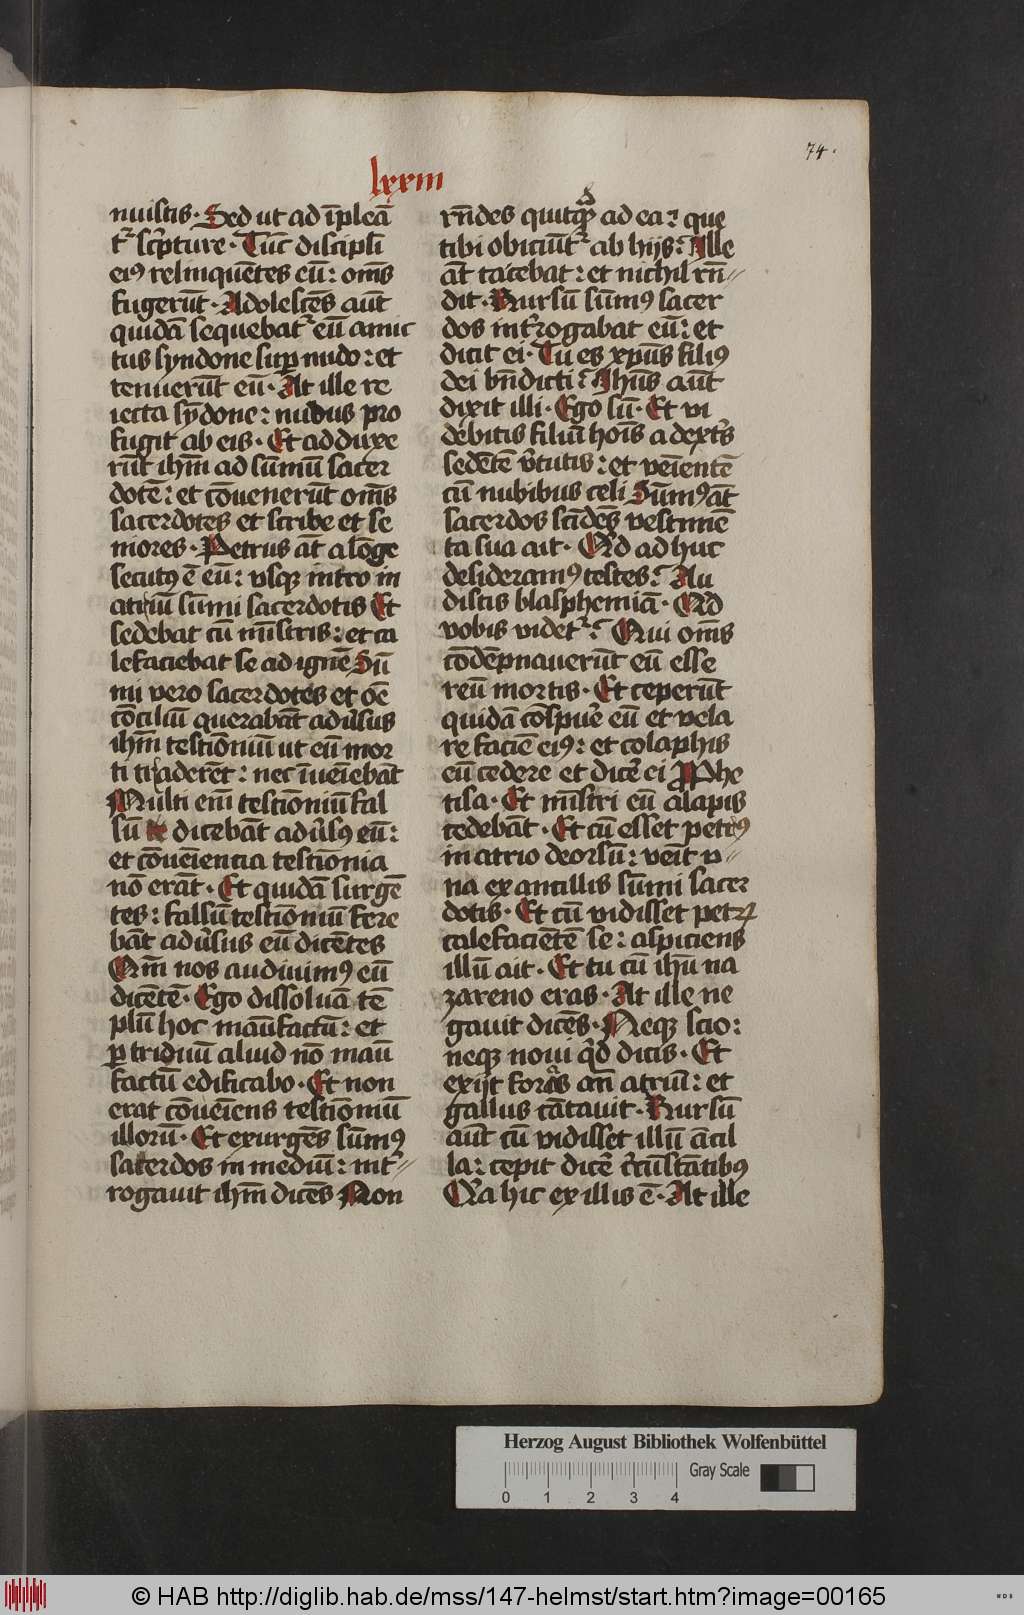 74.
lxxiii
nuistis. Sed ut ad īpleā
t᷒ sc̄pture. Tūc discipl̄i
eiꝰ relinquētes eū: om̄s
fugerūt. Adolescēs aūt
quidā sequebat᷒ eū amic
tus syndone suꝑ nudo: et
tenuerūt eū. At ille re
iecta sȳdone: nudus pro
fugit ab eis. Et adduxe
rūt ihm̄ ad sūmū sacer
dotē: et cōuenerūt om̄s
sacerdotes et scribe et se
niores. Petrus āt a lōge
secutꝰ ē eū: vsqꝫ intro in
atriū sūmi sacerdotis Et
sedebat cū mīstris: et ca
lefaciebat se ad ignē Sū
mi vero sacerdotes et oē
cōciliū querabāt adu̾sus
ihm̄ testimōniū ut eū mor
ti traderēt: nec īueīebāt
Multi eni̅ testimōniū fal
sū dicebāt adu̾sꝰ eū:
et cōueīencia testimōnia
nō erāt. Et quidā surgē
tes: falsū testimōniū fere
bāt adu̾sus eū dicētes
Qm̄ nos audiuimꝰ eū
dicētē. Ego dissoluā tē
plū hoc manūfactū: et
ꝑ triduū aliud nō manū
factū edificabo. Et non
erat cōueīens testimōniū
illorū. Et exurgēs sūmꝰ
sacerdos in mediū: int᷒
rogauit ihm̄ dicēs Non
rn̄des quitqᷓꝫ ad ea? que
tibi obiciūt᷒ ab hijs? Ille
āt tacebat: et nichil rn̄
dit. Rursū sūmꝰ sacer
dos int᷒rogabat eū: et
dicit ei. Tu es xp̄us filiꝰ
dei bn̄dicti? Jhūs aūt
dixit illi. Ego sū. Et vi
debitis filiū hoīs a dext᷒s
sedētē v̾tutis: et veīentē
cū nubibus celi Sūmꝰ āt
sacerdos scīdēs vestimē
ta sua ait. Qͥd ad huc
desideramꝰ testes? Au
distis blasphemiā. Qͥd
vobis videt᷒? Qui om̄s
cōdēpnauerūt eū esse
reū mortis. Et ceperūt
quidā cōspue᷒ eū et vela
re faciē eiꝰ: et colaphis
eū cedere et dice᷒ ei Prophe
tisa. Et mīstri eū alapis
cedebāt. Et cū esset petrꝰ
in atrio deorsū: veīt v
na ex ancillis sūmi sacer
dotis. Et cū vidisset petꝝ
calefaciētē se: aspiciens
illū ait. Et tu cū ihū na
zareno eras. At ille ne
gauit dicēs. Neqꝫ scio:
neqꝫ noui qͥd dicis. Et
exijt foras an̄ atriū: et
gallus cātauit. Rursū
aūt cū vidisset illū ācil
la: cepit dice᷒ cͥcūstātibꝰ
Qͥa hic ex illis ē. At ille
Herzog August Bibliothek Wolfenbüttel
Gray Scale
0 1 2 3 4
© HAB http://diglib.hab.de/mss/147-helmst/start.htm?image=00165